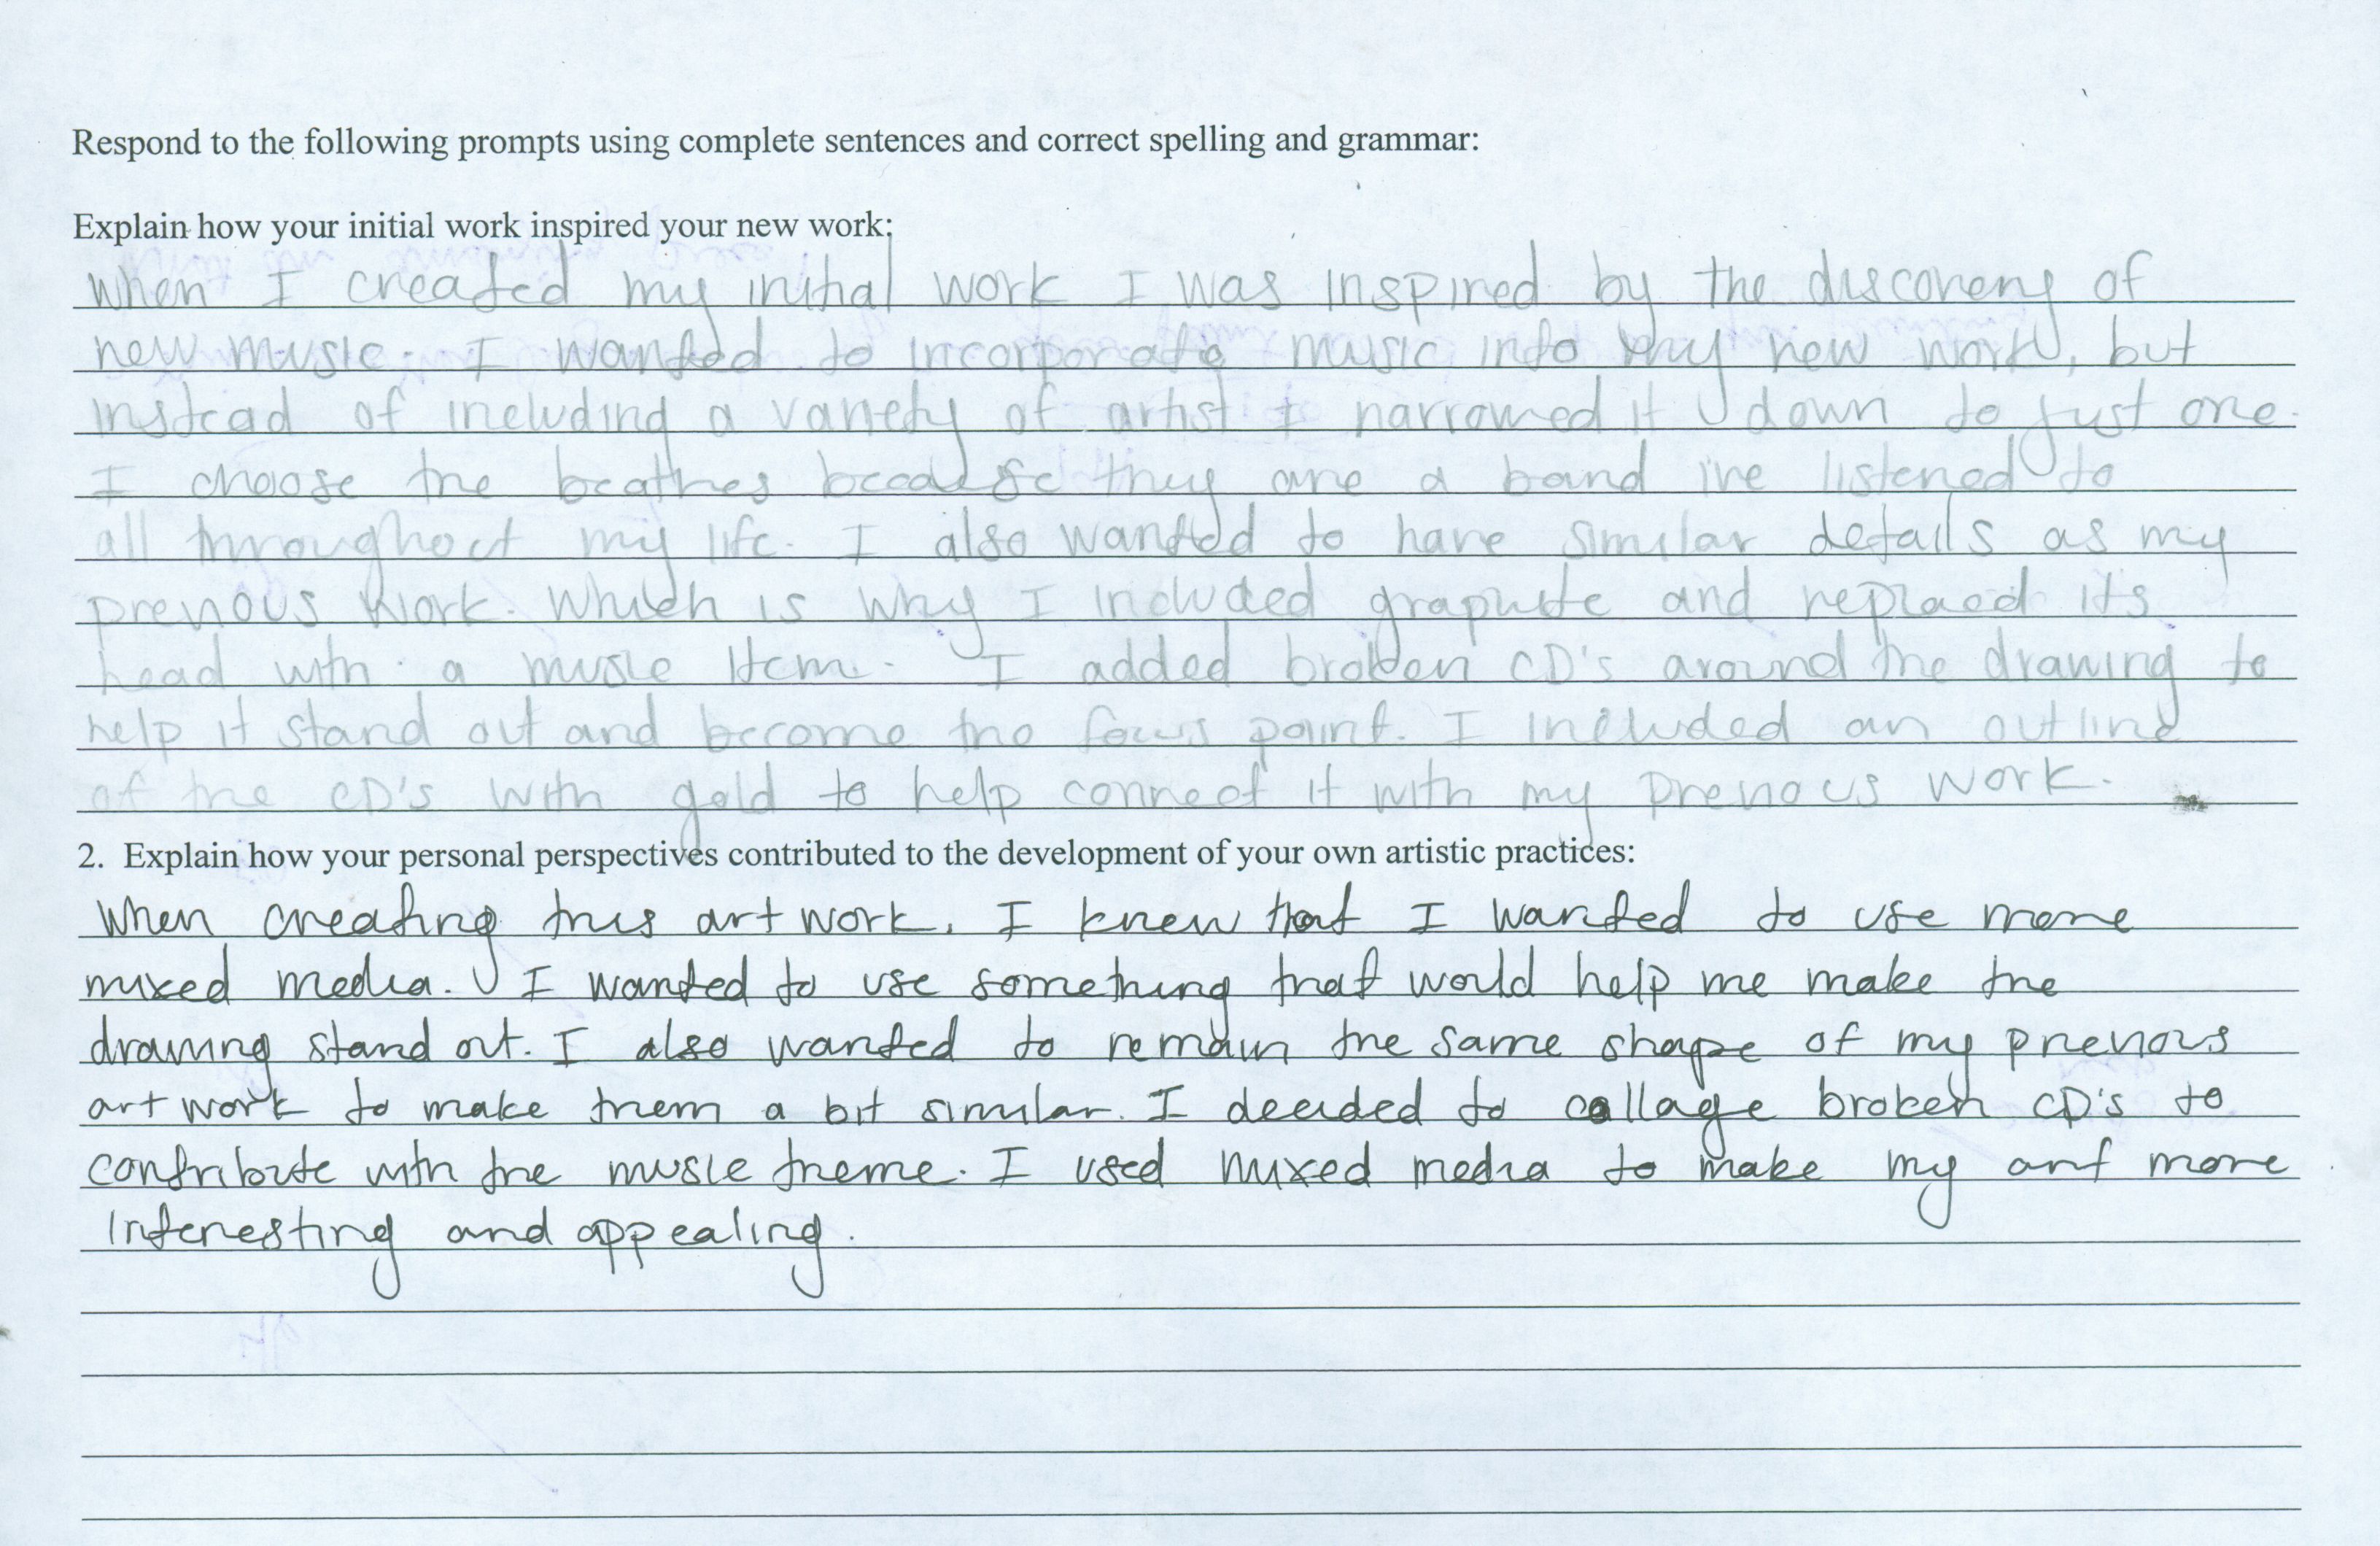 Respond to the following prompts using complete sentences and correct spelling and grammar:
Explain how your initial work inspired your new work:
When I created my initial work I was inspired by the discovery of
new music. I wanted to incorporate music into my new work, but
instead of including a variety of artist I narrowed it down to just one.
I choose the beatles because they are a band i've listened to
all throughout my life. I also wanted to have similar details as my
previous work. Which is why I included graphite and replaced its
head with a music item. I added broken CD's around the drawing to
help it stand out and become the focus point. I included an outline
of the CD's with gold to help connect it with my previous work.
2. Explain how your personal perspectives contributed to the development of your own artistic practices:
When creating this art work, I knew that I wanted to use more
mixed media. I wanted to use something that would help me make the
drawing stand out. I also wanted to remain the same shape of my previous
art work to make them a bit similar. I decided to collage broken CD's to
contribute with the music theme. I used mixed media to make my art more
interesting and appealing.